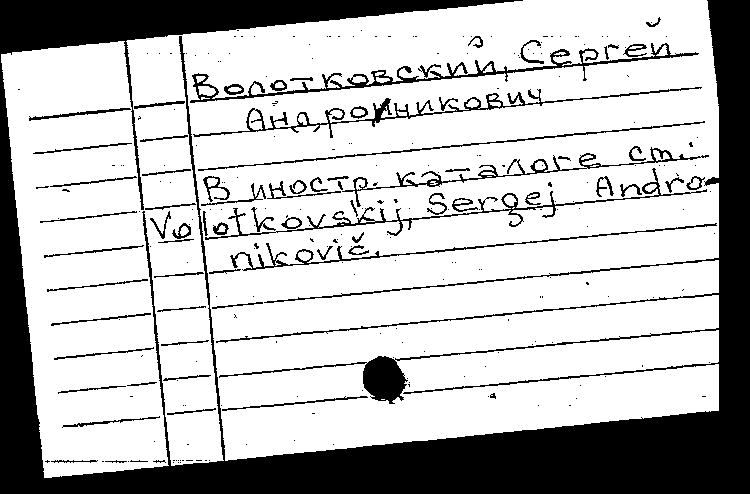 Волотковский, Сергей
Андроникович
В иностр. каталоге см.:
Volotkovskij, Sergej Andro-
nikovič.